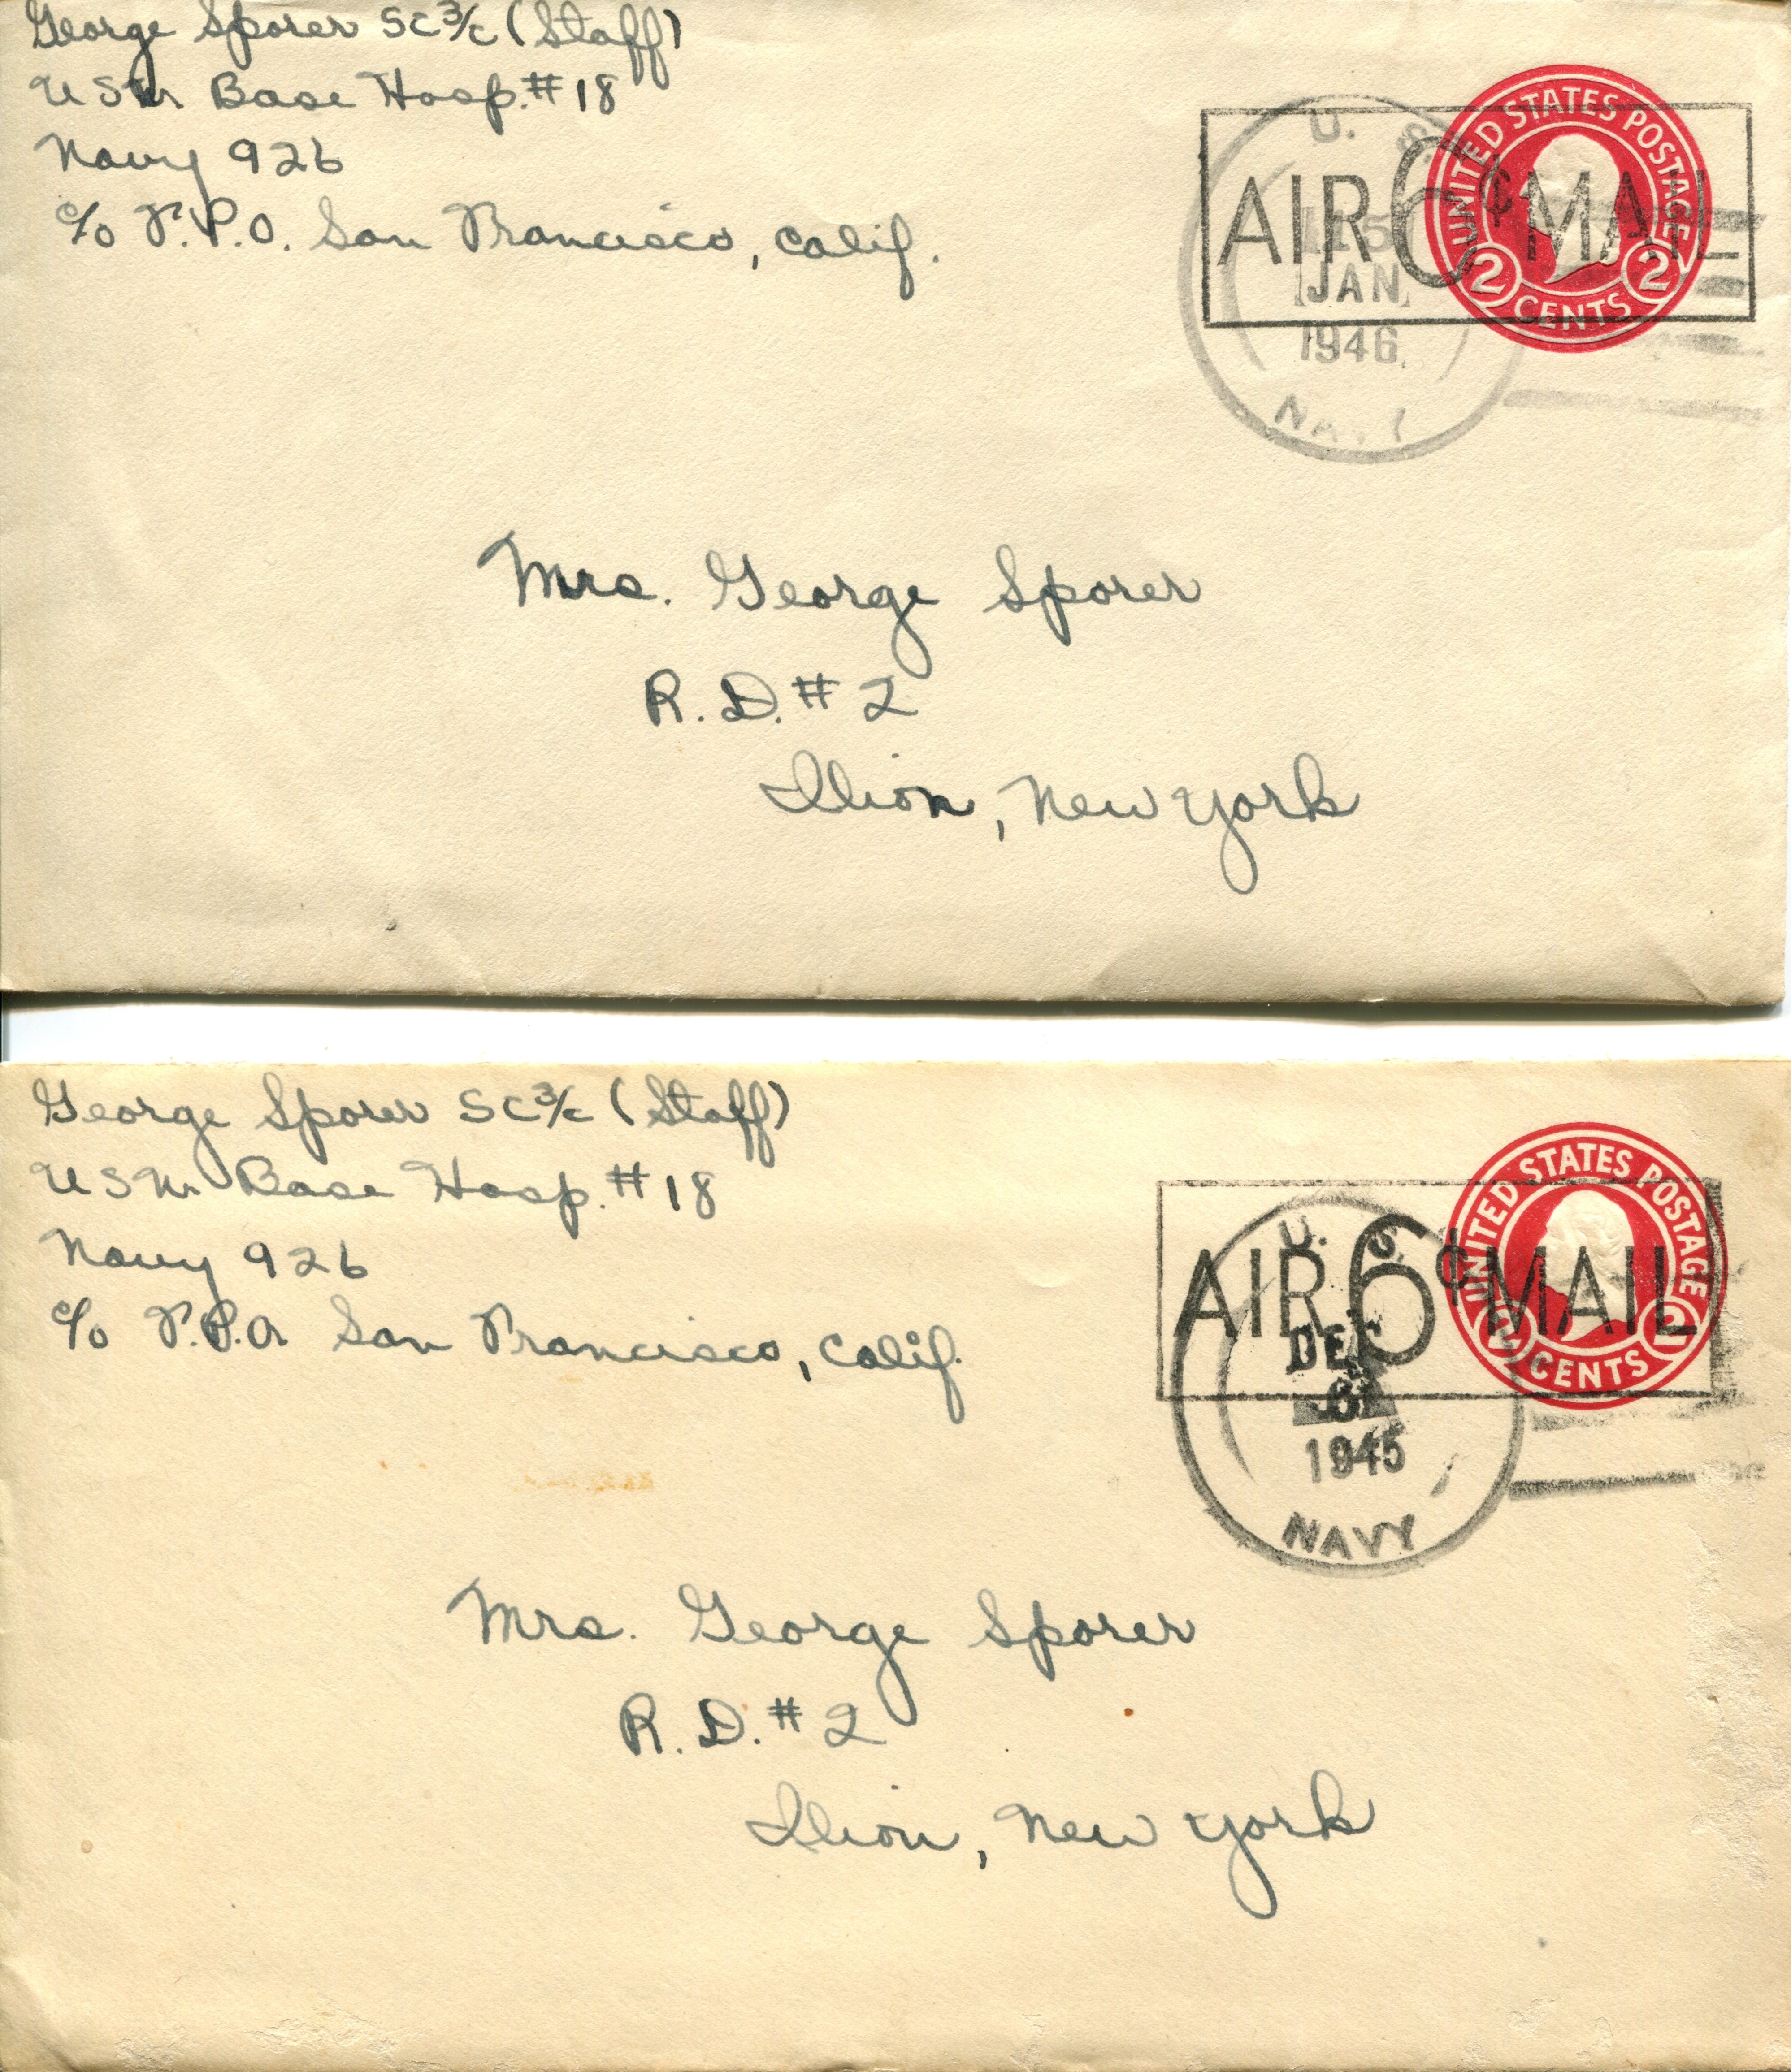 George Sporer SC 3/c (Staff)
USN Base Hosp. #18
Navy 926
c/o F.P.O. San Francisco, Calif.
UNITED STATES POSTAGE
2 CENTS 2
AIR 6¢ MAIL
U. S.
15
JAN
1946
Mrs. George Sporer
R.D. #2
Ilion, New York
George Sporer SC 3/c (Staff)
USN Base Hosp. #18
Navy 926
c/o F.P.O. San Francisco, Calif.
UNITED STATES POSTAGE
2 CENTS 2
AIR 6¢ MAIL
U. S.
DEC
1945
NAVY
Mrs. George Sporer
R.D. #2
Ilion, New York